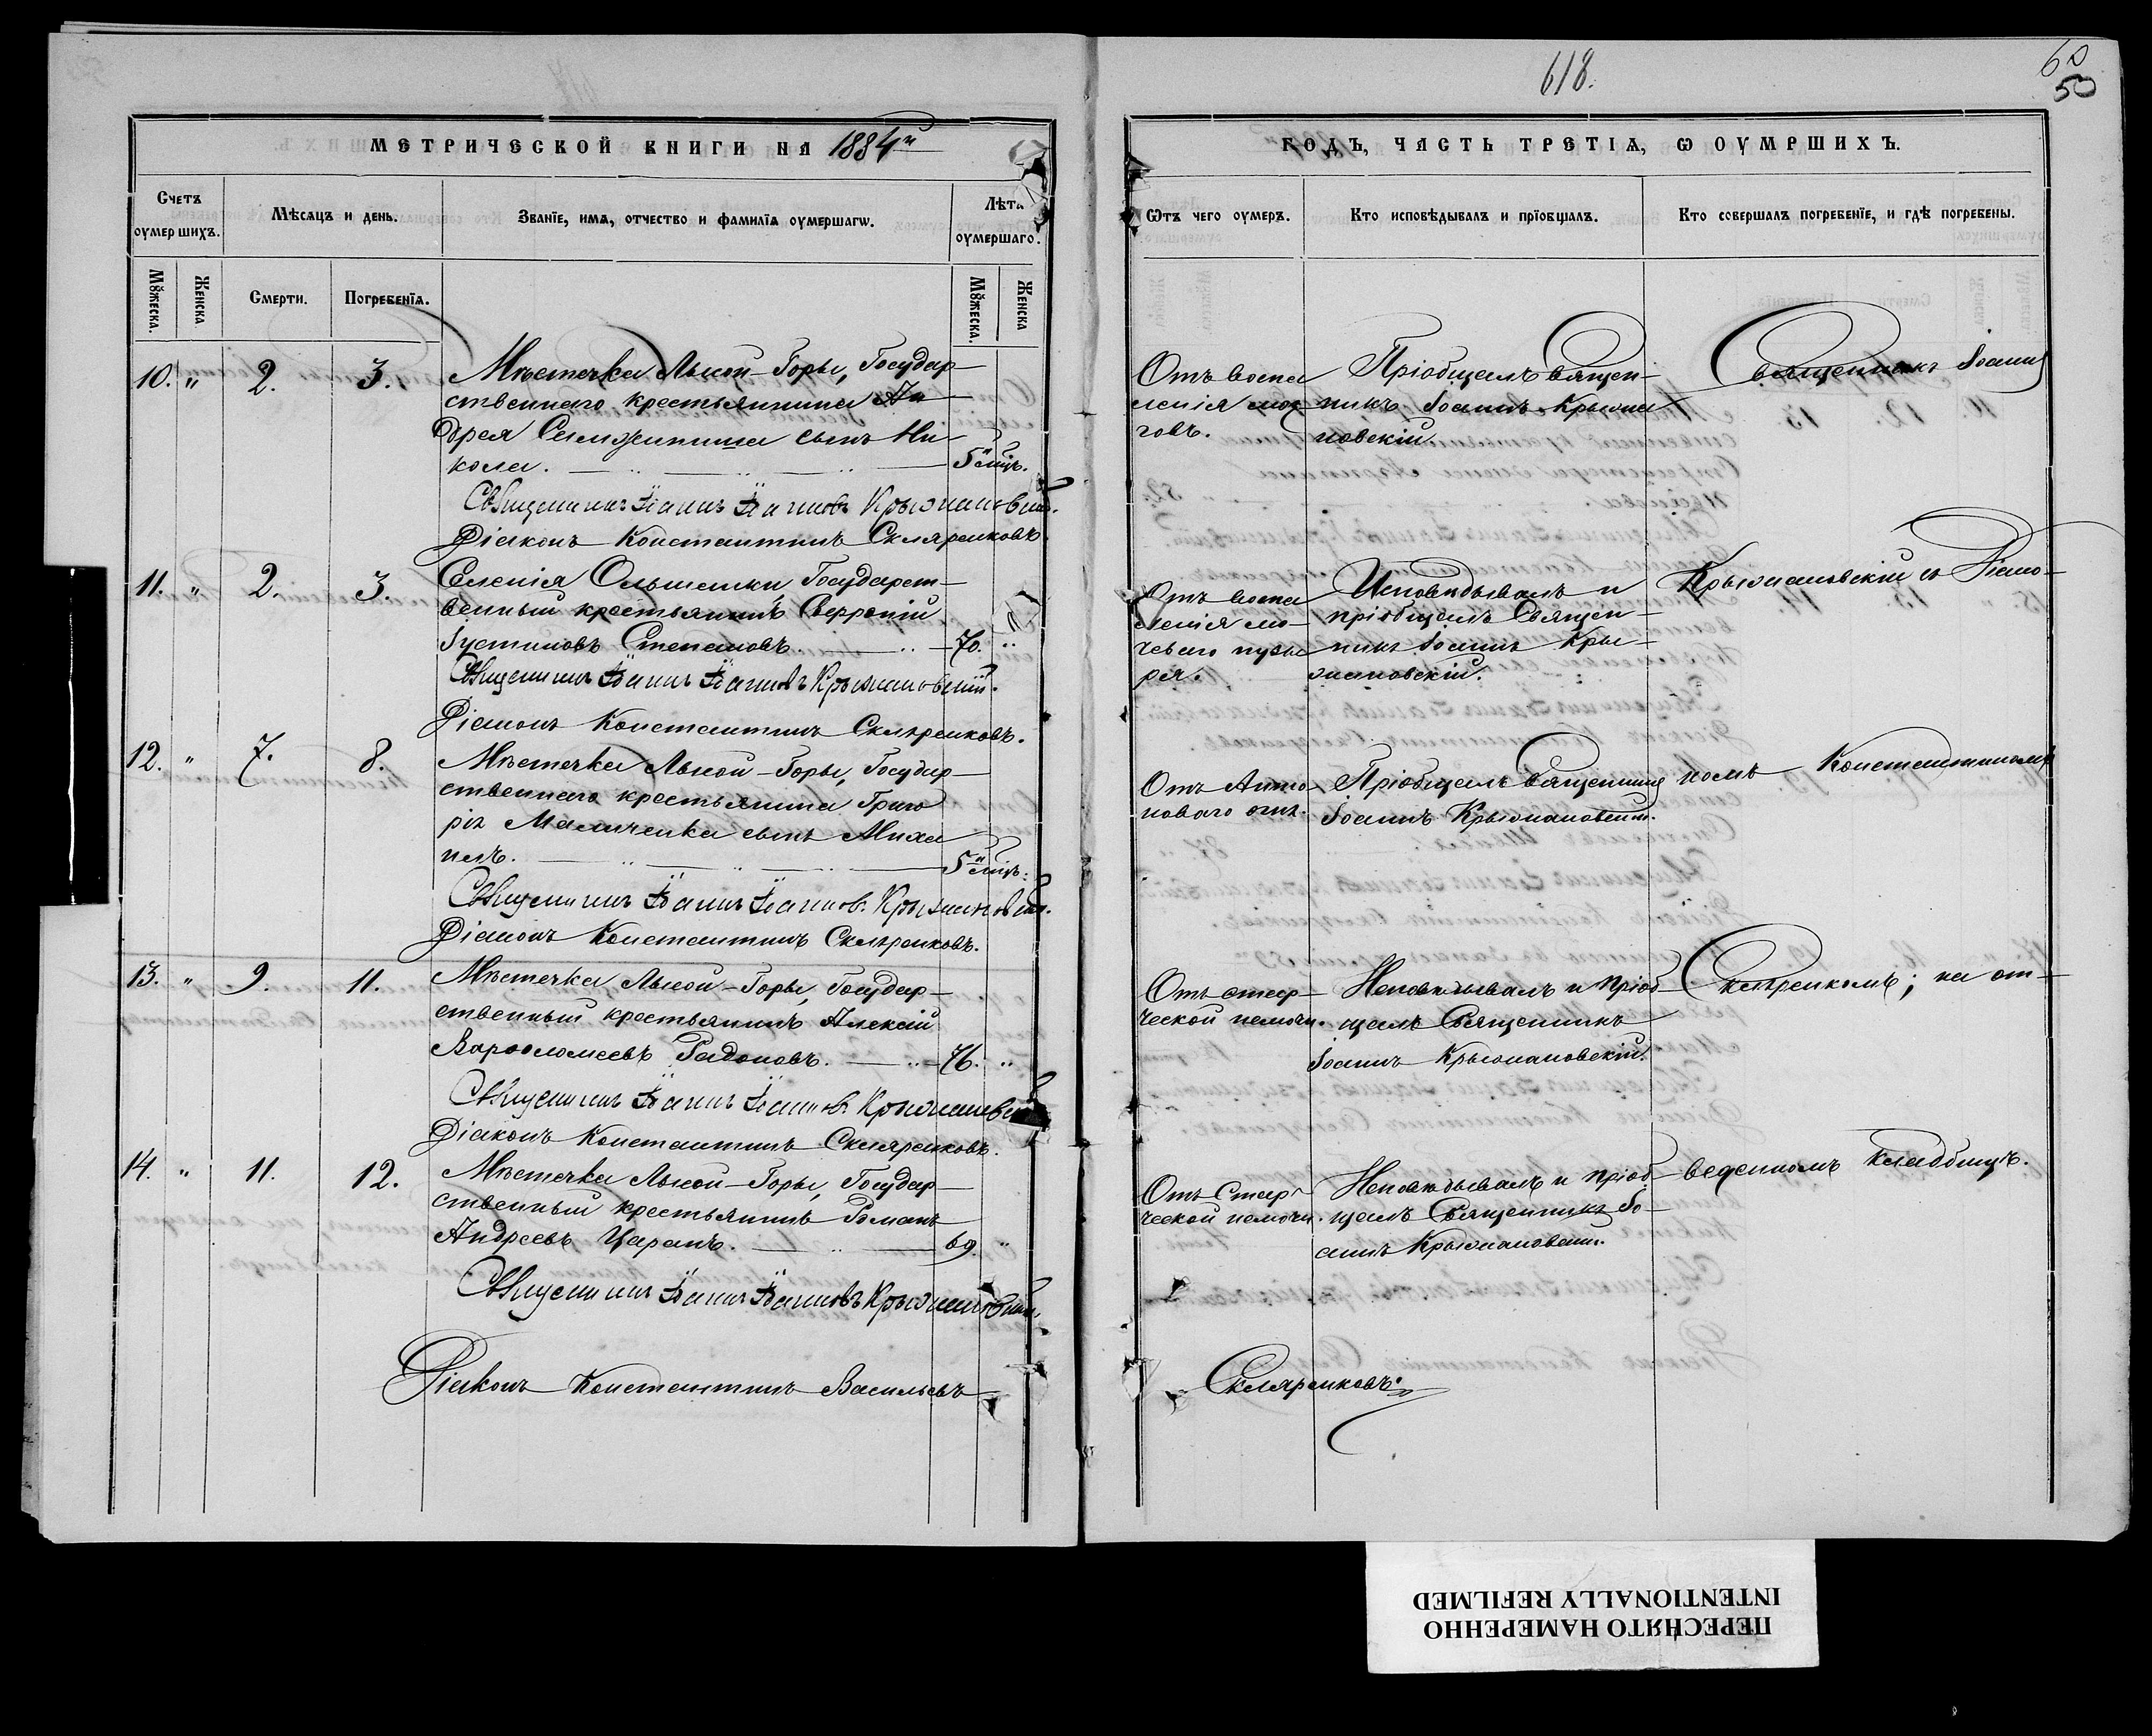 618.
60
50
МЕТРИЧЕСКОЙ КНИГИ НА 1884й
ГОДЪ, ЧАСТЬ ТРЕТІѦ, Ѡ ОУМЕРШИХЪ.
Счетъ оумершихъ.
Мѣсѧцъ и день.
Званїе, имѧ, отчество и фамилїѧ оумершагѡ.
Лѣта оумершаго.
Ѿтъ чего оумеръ.
Кто исповѣдывалъ и прїобщалъ.
Кто совершалъ погребенїе, и гдѣ погребены.
Мꙋжеска.
Женска
Смерти.
Погребенїѧ.
Мꙋжеска.
Женска
10. " 2. 3.
Мѣстечка Лысой-Горы, Государ-
ственнаго крестьянина Ан-
дрея сынъ Ни-
колай. 5 мѣц.
Священникъ Іоаннъ Іоанновъ Крыжановскій.
Діаконъ Константинъ Скляренковъ
Отъ воспа
ленія моз
говъ.
Пріобщалъ Священ-
никъ Іоаннъ Крыжа
новскій
Священникъ Іоаннъ
11. " 2. 3.
Селенія Ольшанки, Государст-
венный крестьянинъ
Іустиновъ Степановъ. 70. "
Священникъ Іоаннъ Іоанновъ Крыжановскій.
Діаконъ Константинъ Скляренковъ.
Отъ воспа
ленія мо-
чеваго пузы
ря.
Исповѣдывалъ и
пріобщалъ Священ-
никъ Іоаннъ Кры-
жановскій.
Крыжановскій съ Діако-
12. " 7. 8.
Мѣстечка Лысой-Горы, Государ-
ственнаго крестьянина Григо
рія сынъ Миха
илъ. 5 мѣц.
Священникъ Іоаннъ Іоанновъ Крыжановскій.
Діаконъ Константинъ Скляренковъ.
Отъ Анто
новаго огня.
Пріобщалъ Священникъ
Іоаннъ Крыжановскій.
номъ Константиномъ
13. " 9. 11.
Мѣстечка Лысой-Горы, Государ-
ственный крестьянинъ Алексій
Варѳоломеевъ Радоновъ. 76. "
Священникъ Іоаннъ Іоанновъ Крыжановскій
Діаконъ Константинъ Скляренковъ.
Отъ стар-
ческой немочи.
Исповѣдывалъ и пріоб-
щалъ Священникъ
Іоаннъ Крыжановскій.
Скляренкомъ; на от-
14. " 11. 12.
Мѣстечка Лысой-Горы, Государ-
ственный крестьянинъ Романъ
Андреевъ Царанъ. 69. "
Священникъ Іоаннъ Іоанновъ Крыжановскій.
Отъ Стар-
ческой немочи.
Исповѣдывалъ и пріоб-
щалъ Священникъ Іо-
аннъ Крыжановскій.
веденномъ кладбищѣ.
Діаконъ Константинъ Васильевъ
Скляренковъ.
ПЕРЕСНЯТО НАМЕРЕННО
INTENTIONALLY REFILMED